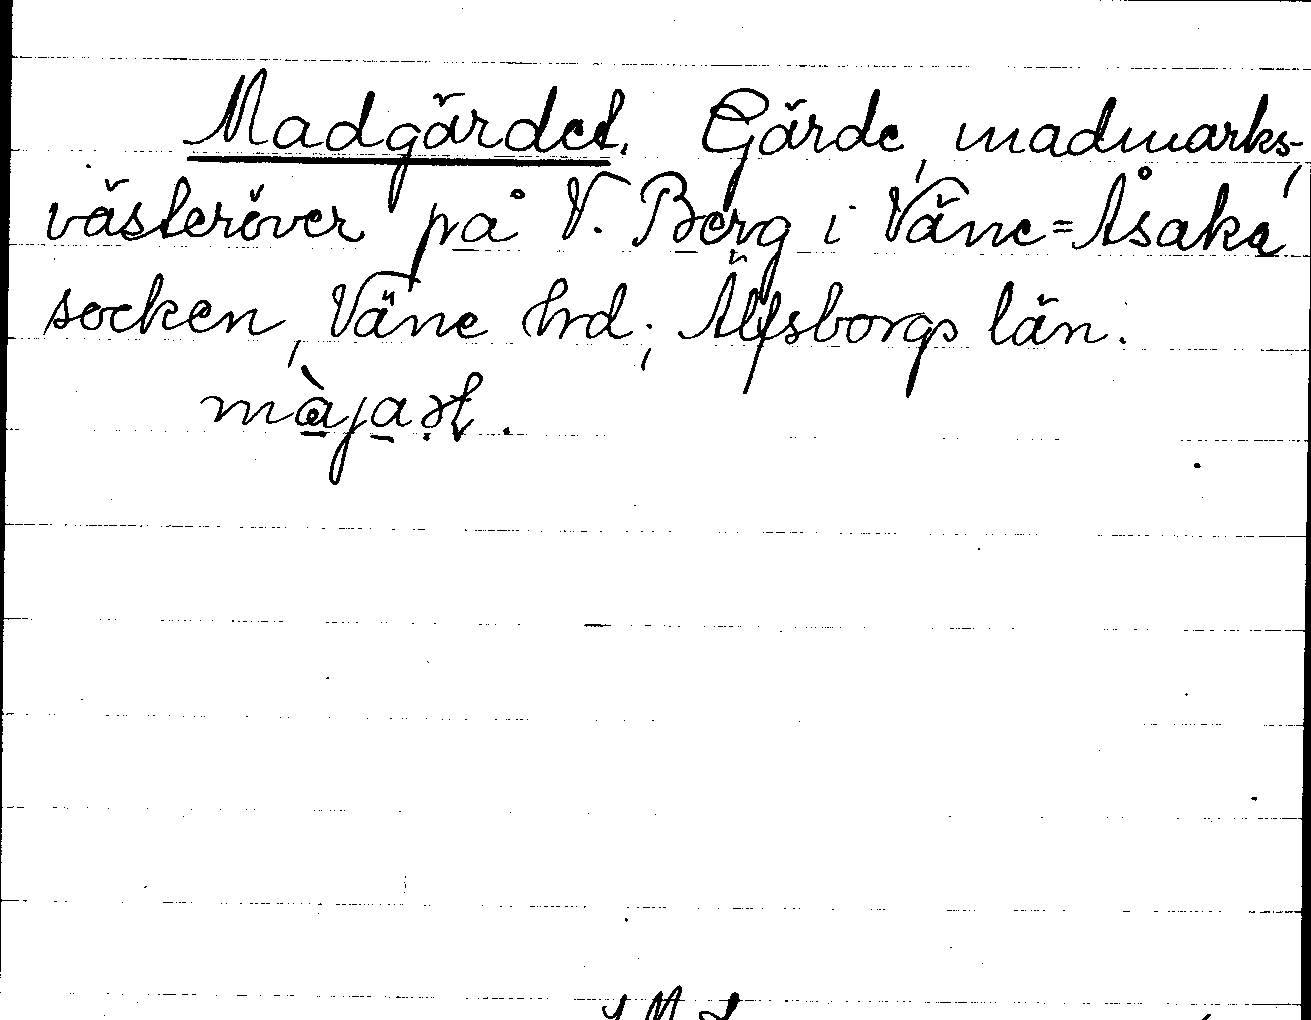 Madgärdet. Gärde, madmarks-,
västeröver på V. Berg i Väne=Åsaka
socken, Väne hrd; Älfsborgs län.